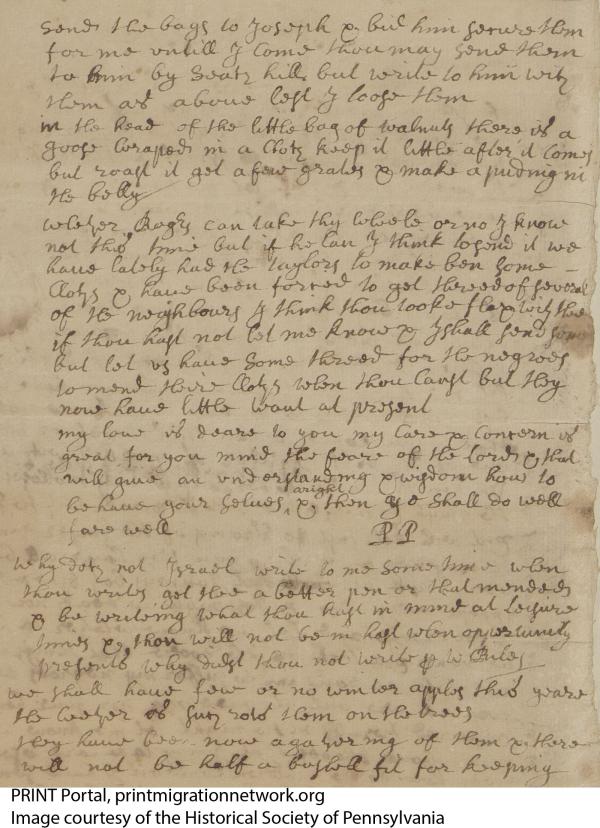 send the bags to Joseph & bid him secure them
for me untill I come thou may send them
to him by Seath hill, but write to him with
them as above lest I loose them
in the head of the little bag of walnuts there is a
goose wraped in a Cloth keep it little after it comes
but roast it get a few grates & make a puding in
the belly
wether Rogr can take thy wheele or no I know
not this time but if he can I think to send it we
have lately had the taylors to make ben some
Cloths & have been forced to get threed of several
of the neighbours I think thou tooke flax with thee
if thou hast not let me know & I shall send some
but let us have some threed for the negroes
to mend there Cloths when thou canst but they
now have little want at present
my love is deare to you my Care & Concern is
great for you mind the feare of the lord & that
will give an understanding & wisdom how to
be have your selves aright & then ye shall do well
fare well PP
Why doth not Israel write to me some time when
thou writes get thee a better pen or that mended
& be writeing what thou hast in mind at leisure
times & thou will not be in hast when oppertunity
presents why didst thou not write p W
we shall have few or no winter apples this yeare
the wether is such rots them on the trees
they have bee now a gathering of them & there
will not be half a bushell fit for keeping
PRINT Portal, printmigrationnetwork.org
Image courtesy of the Historical Society of Pennsylvania